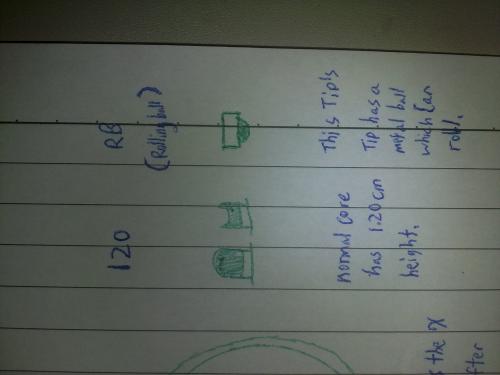 120
RB
(Rolling ball)
normal core
has 1.20 cm
height.
This Tip's
Tip has a
metal ball
which can
roll.
the